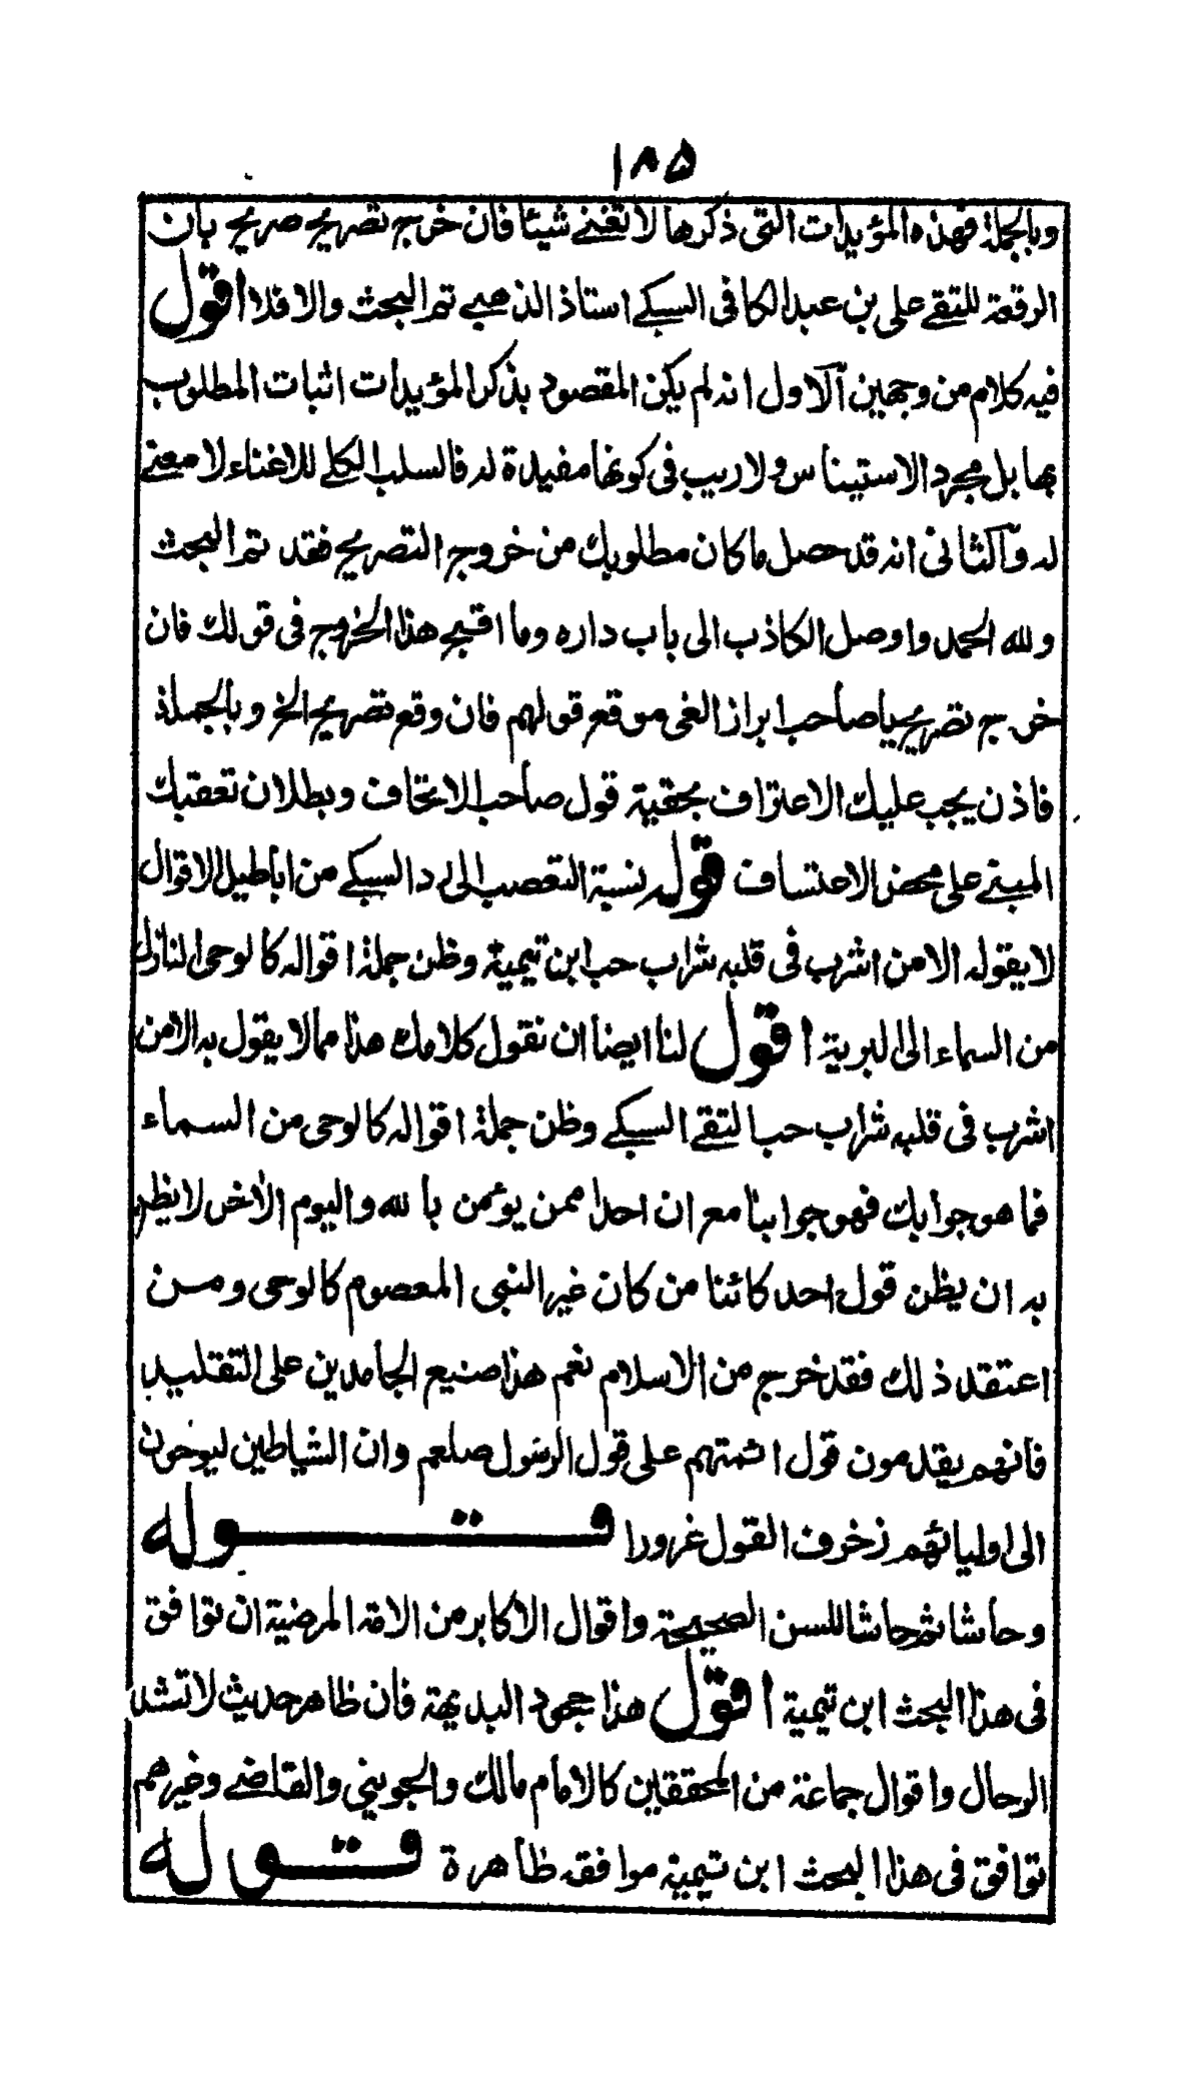 ١٨٥
وبالجملة فهذه المؤيدات التى ذكرها لا تغنے شيئا فان خرج تصريح صريح بان
الرقعة للتقے على بن عبد الكافى السبكے استاذ الذهبے تم البحث والا فلا اقول
فيه كلام من وجهين آلاول انه لم يكن المقصود بذكر المؤيدات اثبات المطلوب
بها بل مجرد الاستيناس ولا ريب فى كونها مفيدة له فالسلب الكلے للاغناء لا معنے
له وآلثانى انه قد حصل ما كان مطلوبك من خروج التصريح فقد تم البحث
ولله الحمد واوصل الكاذب الى باب داره وما اقبح هذا الخروج فى قولك فان
خرج تصريح يا صاحب ابراز الغى موقع قولهم فان وقع تصريح الخ وبالجملة
فاذن يجب عليك الاعتراف بحقية قول صاحب الاتحاف وبطلان تعقبك
المبنے على محض الاعتساف قوله نسبة التعصب الى رد السبكے من اباطيل الاقوال
لا يقوله الا من اشرب فى قلبه شراب حب ابن تيمية وظن جملة اقواله كالوحى النازل
من السماء الى البرية اقول لنا ايضا ان نقول كلامك هذا مما لا يقول به الا من
اشرب فى قلبه شراب حب التقے السبكے وظن جملة اقواله كالوحى من السماء
فما هو جوابك فهو جوابنا مع ان احدا ممن يؤمن بالله واليوم الاخر لا يظن
به ان يظن قول احد كائنا من كان غير النبى المعصوم كالوحى ومن
اعتقد ذلك فقد خرج من الاسلام نعم هذا صنيع الجامدين على التقليد
فانهم يقدمون قول ائمتهم على قول الرسول صلعم وان الشياطين ليوحون
الى اوليائهم زخرف القول غرورا قوله
وحاشا ثم حاشا للسنن الصحيحة واقوال الاكابر من الامة المرضية ان توافق
فى هذا البحث ابن تيمية اقول هذا جحود البديهة فان ظاهر حديث لا تشد
الرحال واقوال جماعة من المحققين كالامام مالك والجوينى والقاضے وغيرهم
توافق فى هذا البحث ابن تيمية موافقة ظاهرة قوله